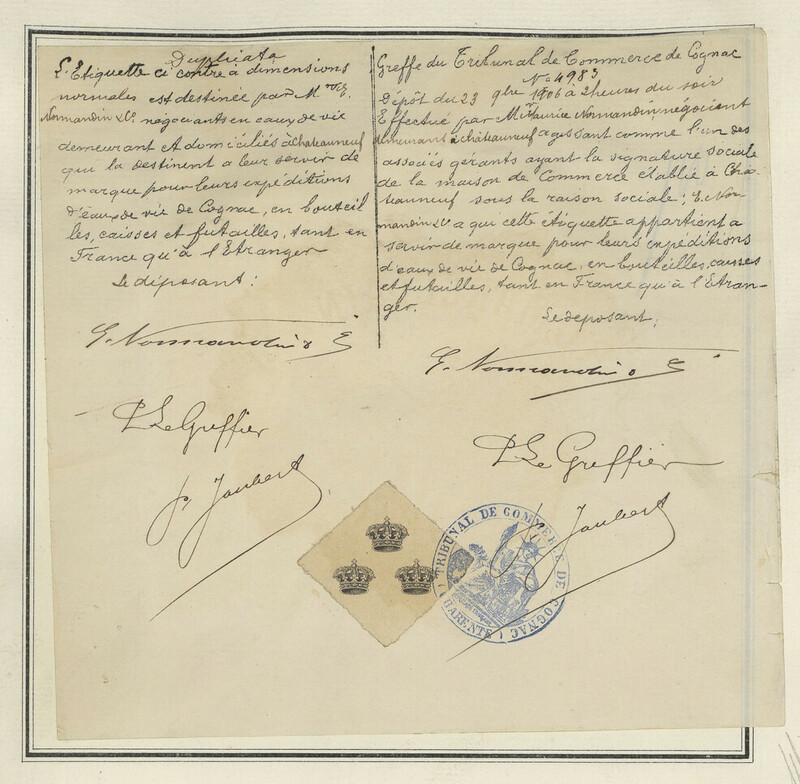 Duplicata
L'Etiquette ci contre à dimensions
normales est destinée par M
Normandin & Cie négociants en eaux de vie
demeurant et domiciliés à Chateauneuf
qui la destinent a leur servir de
marque pour leurs expéditions
d'eaux de vie de Cognac, en bouteil
les, caisses et futailles, tant en
France qu'à l'Etranger
Le déposant :
E. Normandin & Cie
P Le Greffier
P. Joubert
Greffe du Tribunal de Commerce de Cognac
No 4983
Dépôt du 23 9bre 1906 à 2 heures du soir
Effectué par M Maurice Normandin négociant
demeurant à châteauneuf agissant comme l'un des
associés gérants ayant la signature sociale
de la maison de Commerce établie à Châ
teauneuf sous la raison sociale ; E. Nor
mandin & Cie a qui cette étiquette appartient a
servir de marque pour leurs expéditions
d'eaux de vie de Cognac, en bouteilles, caisses
et futailles, tant en France qu'à l'Etran-
ger.
Le déposant,
E. Normandin & Cie
P Le Greffier
P. Joubert
TRIBUNAL DE COMMERCE DE COGNAC
(CHARENTE)